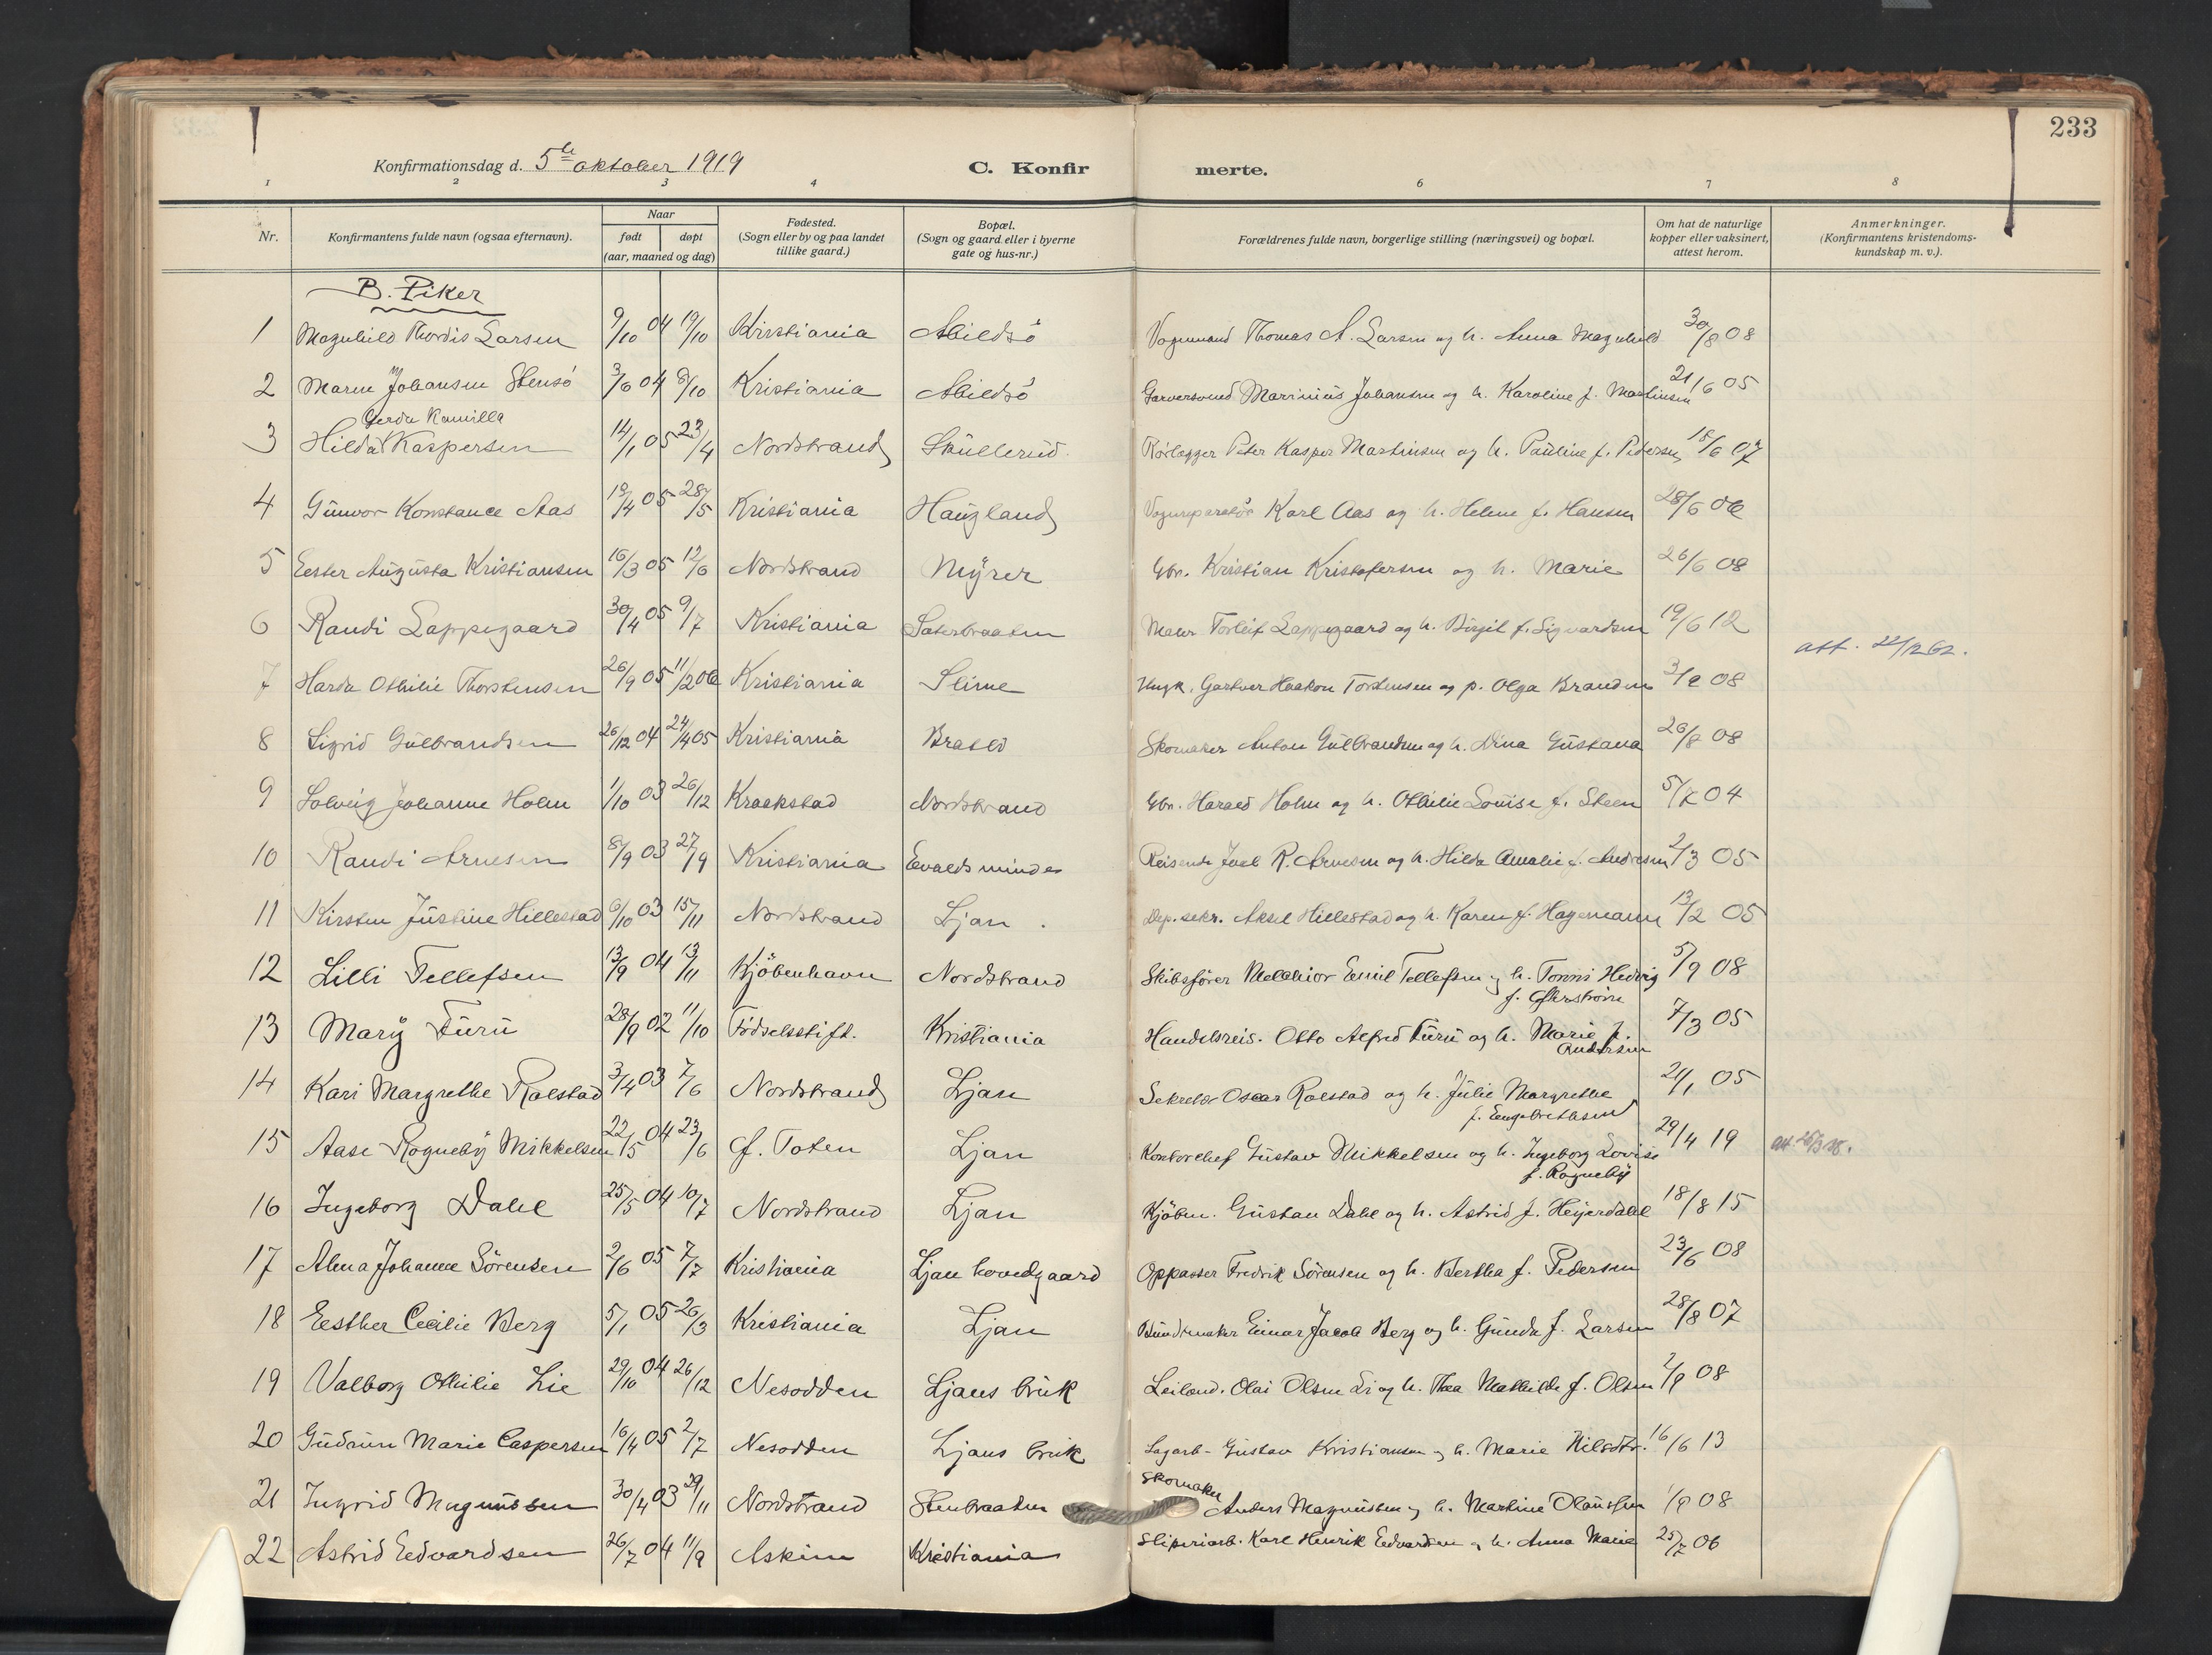 233
Konfirmationsdag d. 5te oktober 1919 C. Konfirmerte.
1 2 3 4 6 7 8
Nr. Konfirmantens fulde navn (ogsaa efternavn). Naar født døpt (aar, maaned og dag) Fødested. (Sogn eller by og paa landet tillike gaard.) Bopæl. (Sogn og gaard eller i byerne gate og hus-nr.) Forældrenes fulde navn, borgerlige stilling (næringsvei) og bopæl. Om hat de naturlige kopper eller vaksinert, attest herom. Anmerkninger. (Konfirmantens kristendoms-kundskap m. v.).
B. Piker
1 Magnhild Thordis Larsen 9/10 04 19/10 Kristiania Abildsö Vognmand Thomas A. Larsen og h. Anna Magnhild 30/8 08
2 Maren Johansen Stensö 3/6 04 9/10 Kristiania Abildsö Garversvend Marinius Johansen og h. Karoline f. Martinsen 21/6 05
3 Hilda Gerda Kamilla Kaspersen 14/1 05 23/4 Nordstrand Skullerud. Rörlægger Peter Kasper Martinsen og h. Pauline f. Pedersen 18/6 07
4 Gunvor Konstance Aas 19/4 05 28/5 Kristiania Haugland Vognreparatör Karl Aas og h. Helene f. Hansen 28/6 06
5 Eester Augusta Kristiansen 16/3 05 12/6 Nordstrand Myrer Gbr. Kristian Kristofersen og h. Marie 26/6 08
6 Randi Lappegaard 30/4 05 9/7 Kristiania Sæterbraaten Maler Torleif Lappegaard og h. Birgit f. Sigvardsen 19/6 12
7 Harda Othilie Thorstensen 26/9 05 11/2 06 Kristiania Slime Ungk. Gartner Haakon Torstensen og p. Olga Brandin 3/9 08 att. 22/12 62.
8 Sigrid Gulbrandsen 26/12 04 24/4 05 Kristiania Bratli Skomaker Anton Gulbrandsen og h. Dina Gustava 26/8 08
9 Solveig Johanne Holm 1/10 03 26/12 Kraakstad Nordstrand Gbr. Harald Holm og h. Othilie Louise f. Steen 5/8 04
10 Randi Arnesen 8/9 03 27/9 Kristiania Evaldsminde Reisende Joel R. Arnesen og h. Hilda Amalie f. Andresen 2/3 05
11 Kirsten Justine Hillestad 6/10 03 15/11 Nordstrand Ljan. Dep. sekr. Aksel Hillestad og h. Karen f. Hagemann 13/2 05
12 Lilli Tellefsen 13/9 04 13/11 Kjöbenhavn Nordstrand Skibsförer Melchior Emil Tellefsen og h. Tonni Hedvig f. 5/9 08
13 Mary Furu 28/9 02 11/10 Födselsstift. Kristiania Handelsreis. Otto Alfred Furu og h. Marie f. Andersen 7/3 05
14 Kari Margrethe Rolstad 3/4 03 7/6 Nordstrand Ljan Sekretær Oscar Rolstad og h. Julie Margrethe f. Engebrethsen 21/1 05
15 Aase Rogneby Mikkelsen 22/5 04 23/6 Ö. Toten Ljan Kontorchef Gustav Mikkelsen og h. Ingeborg Lovise f. Rogneby 29/4 19
16 Ingeborg Dahl 25/5 04 10/7 Nordstrand Ljan Kjöbm. Gustav Dahl og h. Astrid f. Heyerdahl 18/8 15
17 Alma Johanne Sörensen 2/6 05 7/7 Kristiania Ljan hovedgaard Oppasser Fredrik Sörensen og h. Bertha f. Pedersen 23/6 08
18 Eesther Cecilie Berg 5/1 05 26/3 Kristiania Ljan Bundtmaker Einar Jacob Berg og h. Gunda f. Larsen 28/8 07
19 Valborg Othilie Lie 29/10 04 26/12 Nesodden Ljans bruk Leilænd. Olai Olsen Li og h. Thea Mathilde f. Olsen 2/9 08
20 Gudrun Marie Caspersen 16/4 05 2/7 Nesodden Ljans bruk Sagarb. Gustav Kristiansen og h. Marie Nilsdtr. 16/6 13
21 Ingrid Magnussen 30/4 03 29/11 Nordstrand Stenbraaten Skomaker Anders Magnussen og h. Martine Olaussen 1/9 08
22 Astrid Edvardsen 26/7 04 11/9 Askim Kristiania Sliperiarb. Karl Henrik Edvardsen og h. Anna Marie 25/7 06